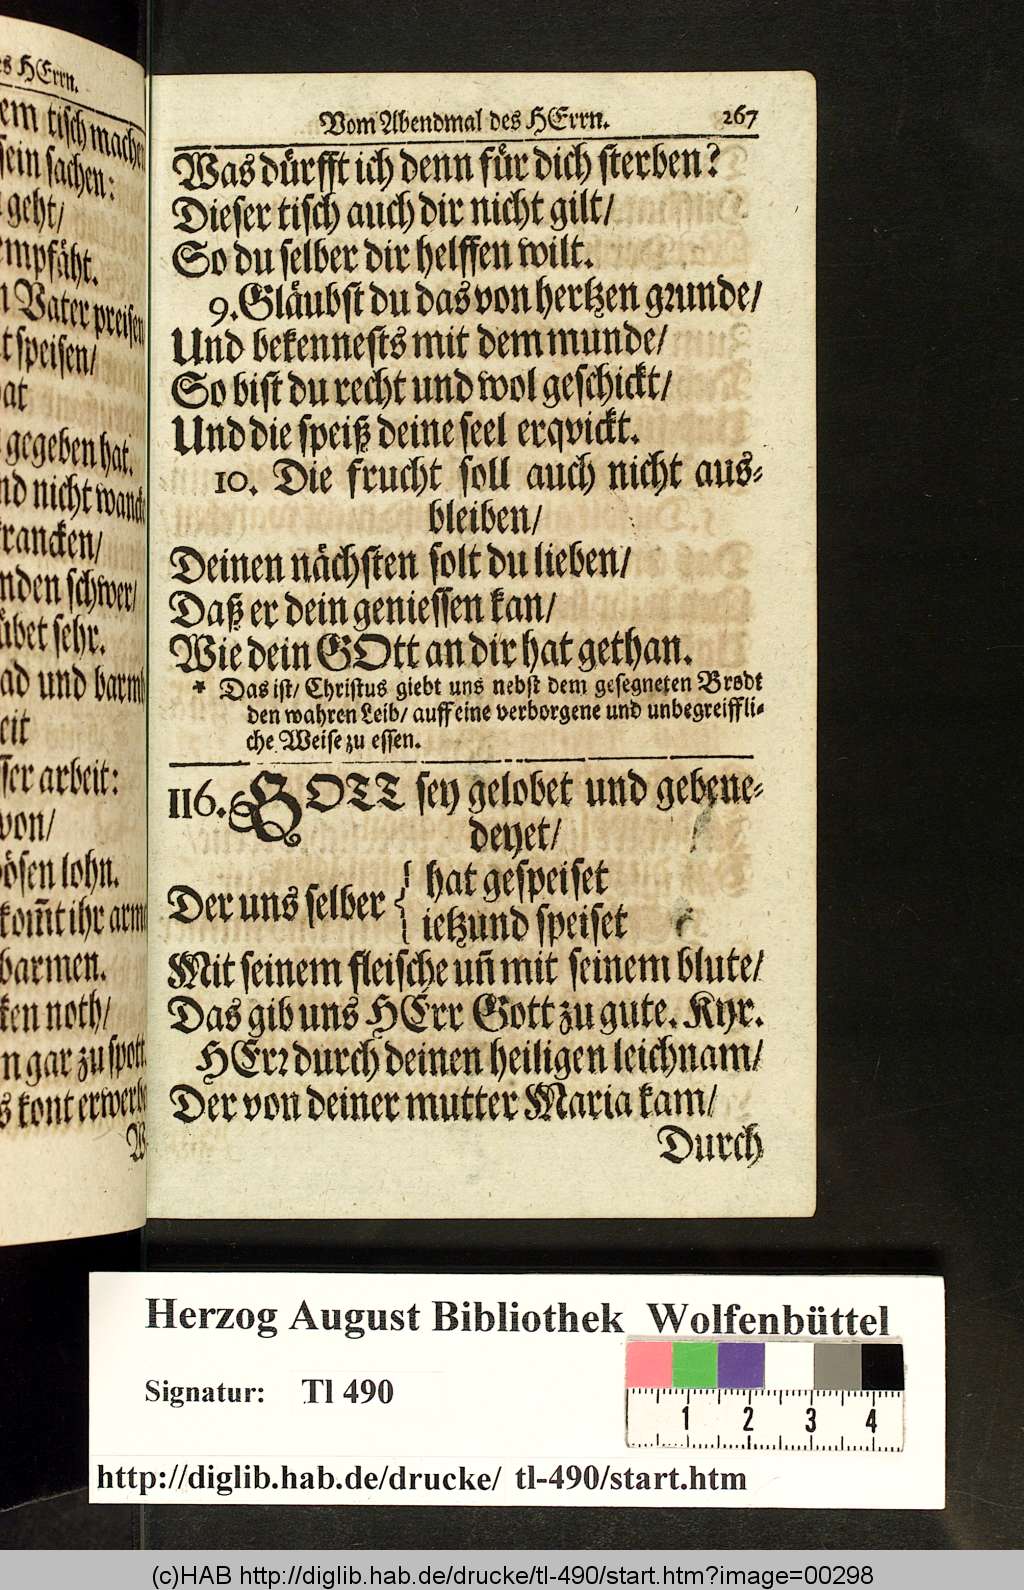 es HErrn.
tisch machen
sein sachen:
geht/
empfäht.
Vater preisen
speisen/
gegeben hat.
nicht wancken
krancken/
schwer/
sehr.
und barmh
arbeit:
von/
bösen lohn.
kom̃t ihr arme
noth/
gar zu spott
kont erwerben
Vom Abendmal des HErrn. 267
Was dürfft ich denn für dich sterben?
Dieser tisch auch dir nicht gilt/
So du selber dir helffen wilt.
9. Gläubst du das von hertzen grunde/
Und bekennests mit dem munde/
So bist du recht und wol geschickt/
Und die speiß deine seel erqvickt.
10. Die frucht soll auch nicht aus-
bleiben/
Deinen nächsten solt du lieben/
Daß er dein geniessen kan/
Wie dein GOtt an dir hat gethan.
* Das ist/ Christus giebt uns nebst dem gesegneten Brodt
den wahren Leib/ auff eine verborgene und unbegreiffli-
che Weise zu essen.
116. GOTT sey gelobet und gebene-
deyet/
Der uns selber { hat gespeiset
ietzund speiset
Mit seinem fleische uñ mit seinem blute/
Das gib uns HErr Gott zu gute. Kyr.
HErr durch deinen heiligen leichnam/
Der von deiner mutter Maria kam/
Durch
Herzog August Bibliothek Wolfenbüttel
Signatur: Tl 490
1 2 3 4
http://diglib.hab.de/drucke/ tl-490/start.htm
(c)HAB http://diglib.hab.de/drucke/tl-490/start.htm?image=00298